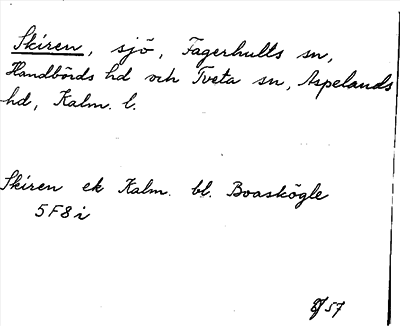 Skiren, sjö, Fagerhults sn,
Handbörds hd och Tveta sn, Aspelands
hd, Kalm. l.
Skiren ek Kalm. bl. Boaskögle
5F8i
57